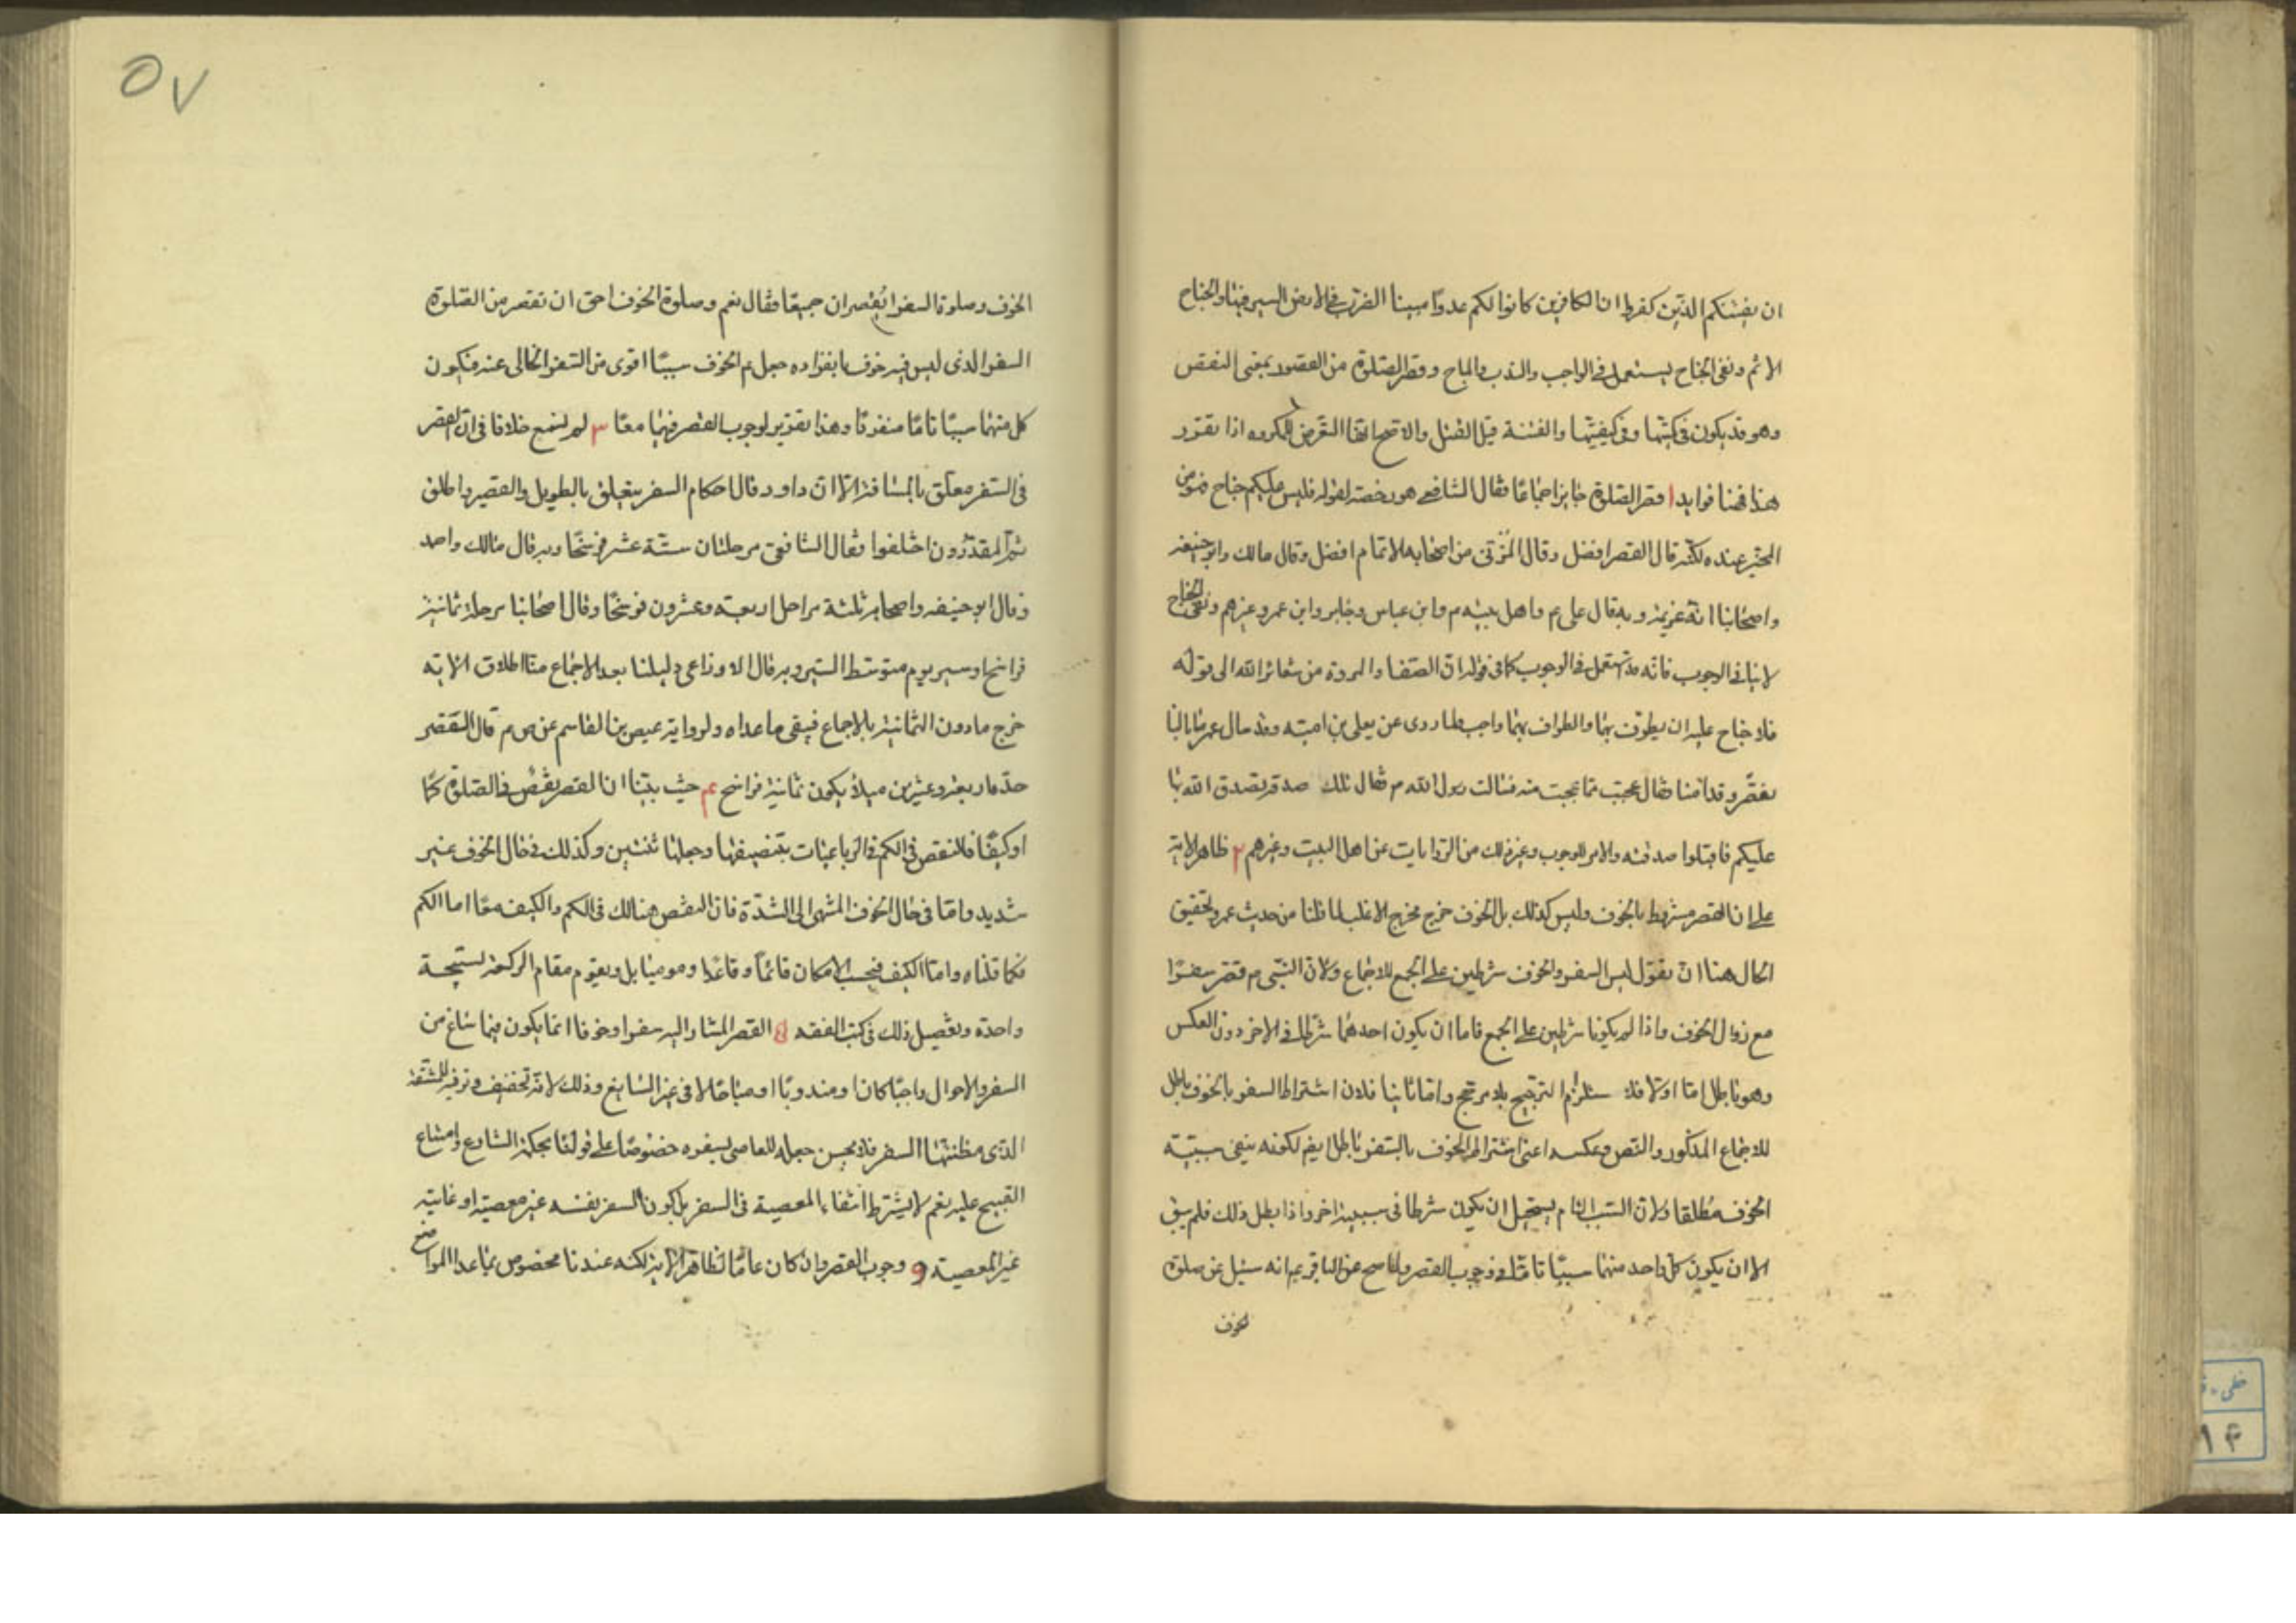 ان يفتنكم الذين كفروا ان الكافرين كانوا لكم عدوا مبينا الضرب فى الارض السير فيها والجناح
الاثم ونفى الجناح يستعمل فى الواجب والندب والمباح وقصر الصلوة من القصور بمعنى النقص
وهو قد يكون فى كميتها وفى كيفيتها والفتنة قيل القتل والاصح انها التعرض للمكروه اذا تقرر
هذا فهنا فوايد ا قصر الصلوة جايز اجماعا فقال الشافعى هو رخصة لقوله فليس عليكم جناح فهو من
المخير عنده لكنه قال القصر افضل وقال المزنى من اصحابه الاتمام افضل وقال مالك وابو حنيفه
واصحابنا انه عزيمة وبه قال على ع واهل بيته ع وابن عباس وجابر وابن عمر وغيرهم ونفى الجناح
لا ينافى الوجوب فانه قد يستعمل فى الوجوب كما فى قوله ان الصفا والمروة من شعائر الله الى قوله
فلا جناح عليه ان يطوف بهما والطواف بهما واجب ولما روى عن يعلى بن امية وقد سال عمر ما بالنا
نقصر وقد امنا فقال عجبت مما عجبت منه فسالت رسول الله م فقال تلك صدقة تصدق الله بها
عليكم فاقبلوا صدقته والامر للوجوب وغير ذلك من الروايات عن اهل البيت وغيرهم ٢ ظاهر الاية
على ان القصر مشروط بالخوف وليس كذلك بل الخوف خرج مخرج الاغلب لما قلنا من حديث عمر وتحقيق
الحال هنا ان نقول ليس السفر والخوف شرطين على الجمع للاجماع ولان النبى م قصر سفرا
مع زوال الخوف واذا لم يكونا شرطين على الجمع فاما ان يكون احدهما شرطا فى الاخر دون العكس
وهو باطل اما اولا فلاستلزام الترجيح بلا مرجح واما ثانيا فلان اشتراط السفر بالخوف باطل
للاجماع المذكور والنص وعكسه اعنى اشتراط الخوف بالسفر باطل ايضا لكونه ينفى سببية
الخوف مطلقا ولان السبب التام يستحيل ان يكون شرطا فى سببية اخر واذا بطل ذلك فلم يبق
الا ان يكون كل واحد منهما سببا تاما فى وجوب القصر ولما صح عن الباقر ع انه سئل عن صلوة
الخوف
٥٧
الخوف وصلوة السفر ايقصران جميعا فقال نعم وصلوة الخوف احق ان تقصر من الصلوة
السفر الذى ليس فيه خوف بانفراده جعل ع الخوف سببا اقوى من السفر الخالى عنه فيكون
كل منهما سببا تاما منفردا وهذا تقرير لوجوب القصر فيهما معا ٣ لم نسمع خلافا فى ان القصر
فى السفر معلق بالمسافة الا ان داود قال احكام السفر يتعلق بالطويل والقصير واطلق
ثم المقدرون اختلفوا فقال الشافعى مرحلتان ستة عشر فرسخا وبه قال مالك واحمد
وقال ابو حنيفه واصحابه ثلثة مراحل اربعة وعشرون فرسخا وقال اصحابنا مرحلة ثمانية
فراسخ او سير يوم متوسط السير وبه قال الاوزاعى دليلنا بعد الاجماع منا اطلاق الاية
خرج مادون الثمانية بالاجماع فيبقى ما عداه ولرواية عيص بن القاسم عن ص ع قال التقصير
حده اربعة وعشرين ميلا يكون ثمانية فراسخ ٤ حيث بينا ان القصر نقص فى الصلوة كما
او كيفا فالنقص فى الكم فى الرباعيات بتنصيفها وجعلها ثنتين وكذلك فى حال الخوف غير
شديد واما فى حال الخوف المنتهى الى الشدة فان النقص هنالك فى الكم والكيف معا اما الكم
فكما قلناه واما الكيف فبحسب الامكان قائما وقاعدا وموميا بل ويقوم مقام الركعة تسبيحة
واحدة وتفصيل ذلك فى كتب الفقه ۵ القصر المشار اليه سفرا وخوفا انما يكون فيما ساغ من
السفر والاحوال واجبا كان او مندوبا او مباحا لا فى غير السايغ وذلك لانه تخفيف وترفيه للمشقة
الذى مظنتها السفر فلا يحسن جعله للعاصى بسفره خصوصا على قولنا بحكمة الشارع وامتناع
القبيح عليه نعم لا يشترط انتفاء المعصية فى السفر بل كون السفر نفسه غير معصية او غايته
غير المعصية و وجوب القصر وان كان عاما لظاهر الاية لكنه عندنا مخصوص بما عدا المواضع